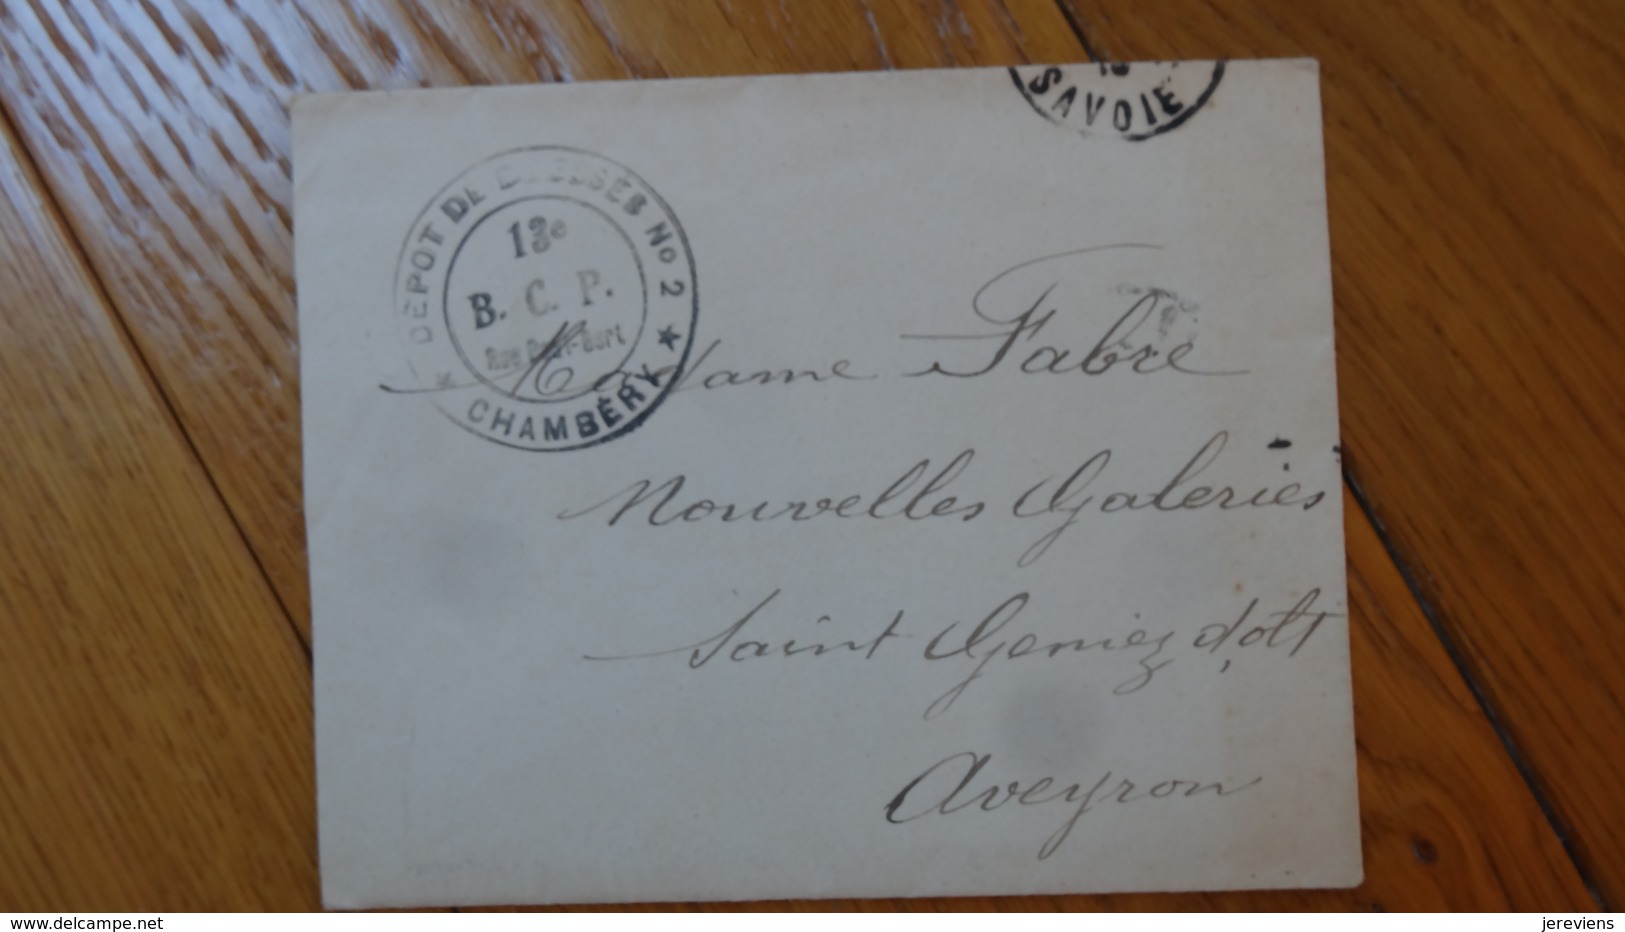 SAVOIE
DÉPOT DE BLESSÉS No 2
13e
B. C. P.
Rue
CHAMBÉRY
Madame Fabre
Nouvelles Galeries
Saint Geniez d'olt
Aveyron
www.delcampe.net
jereviens